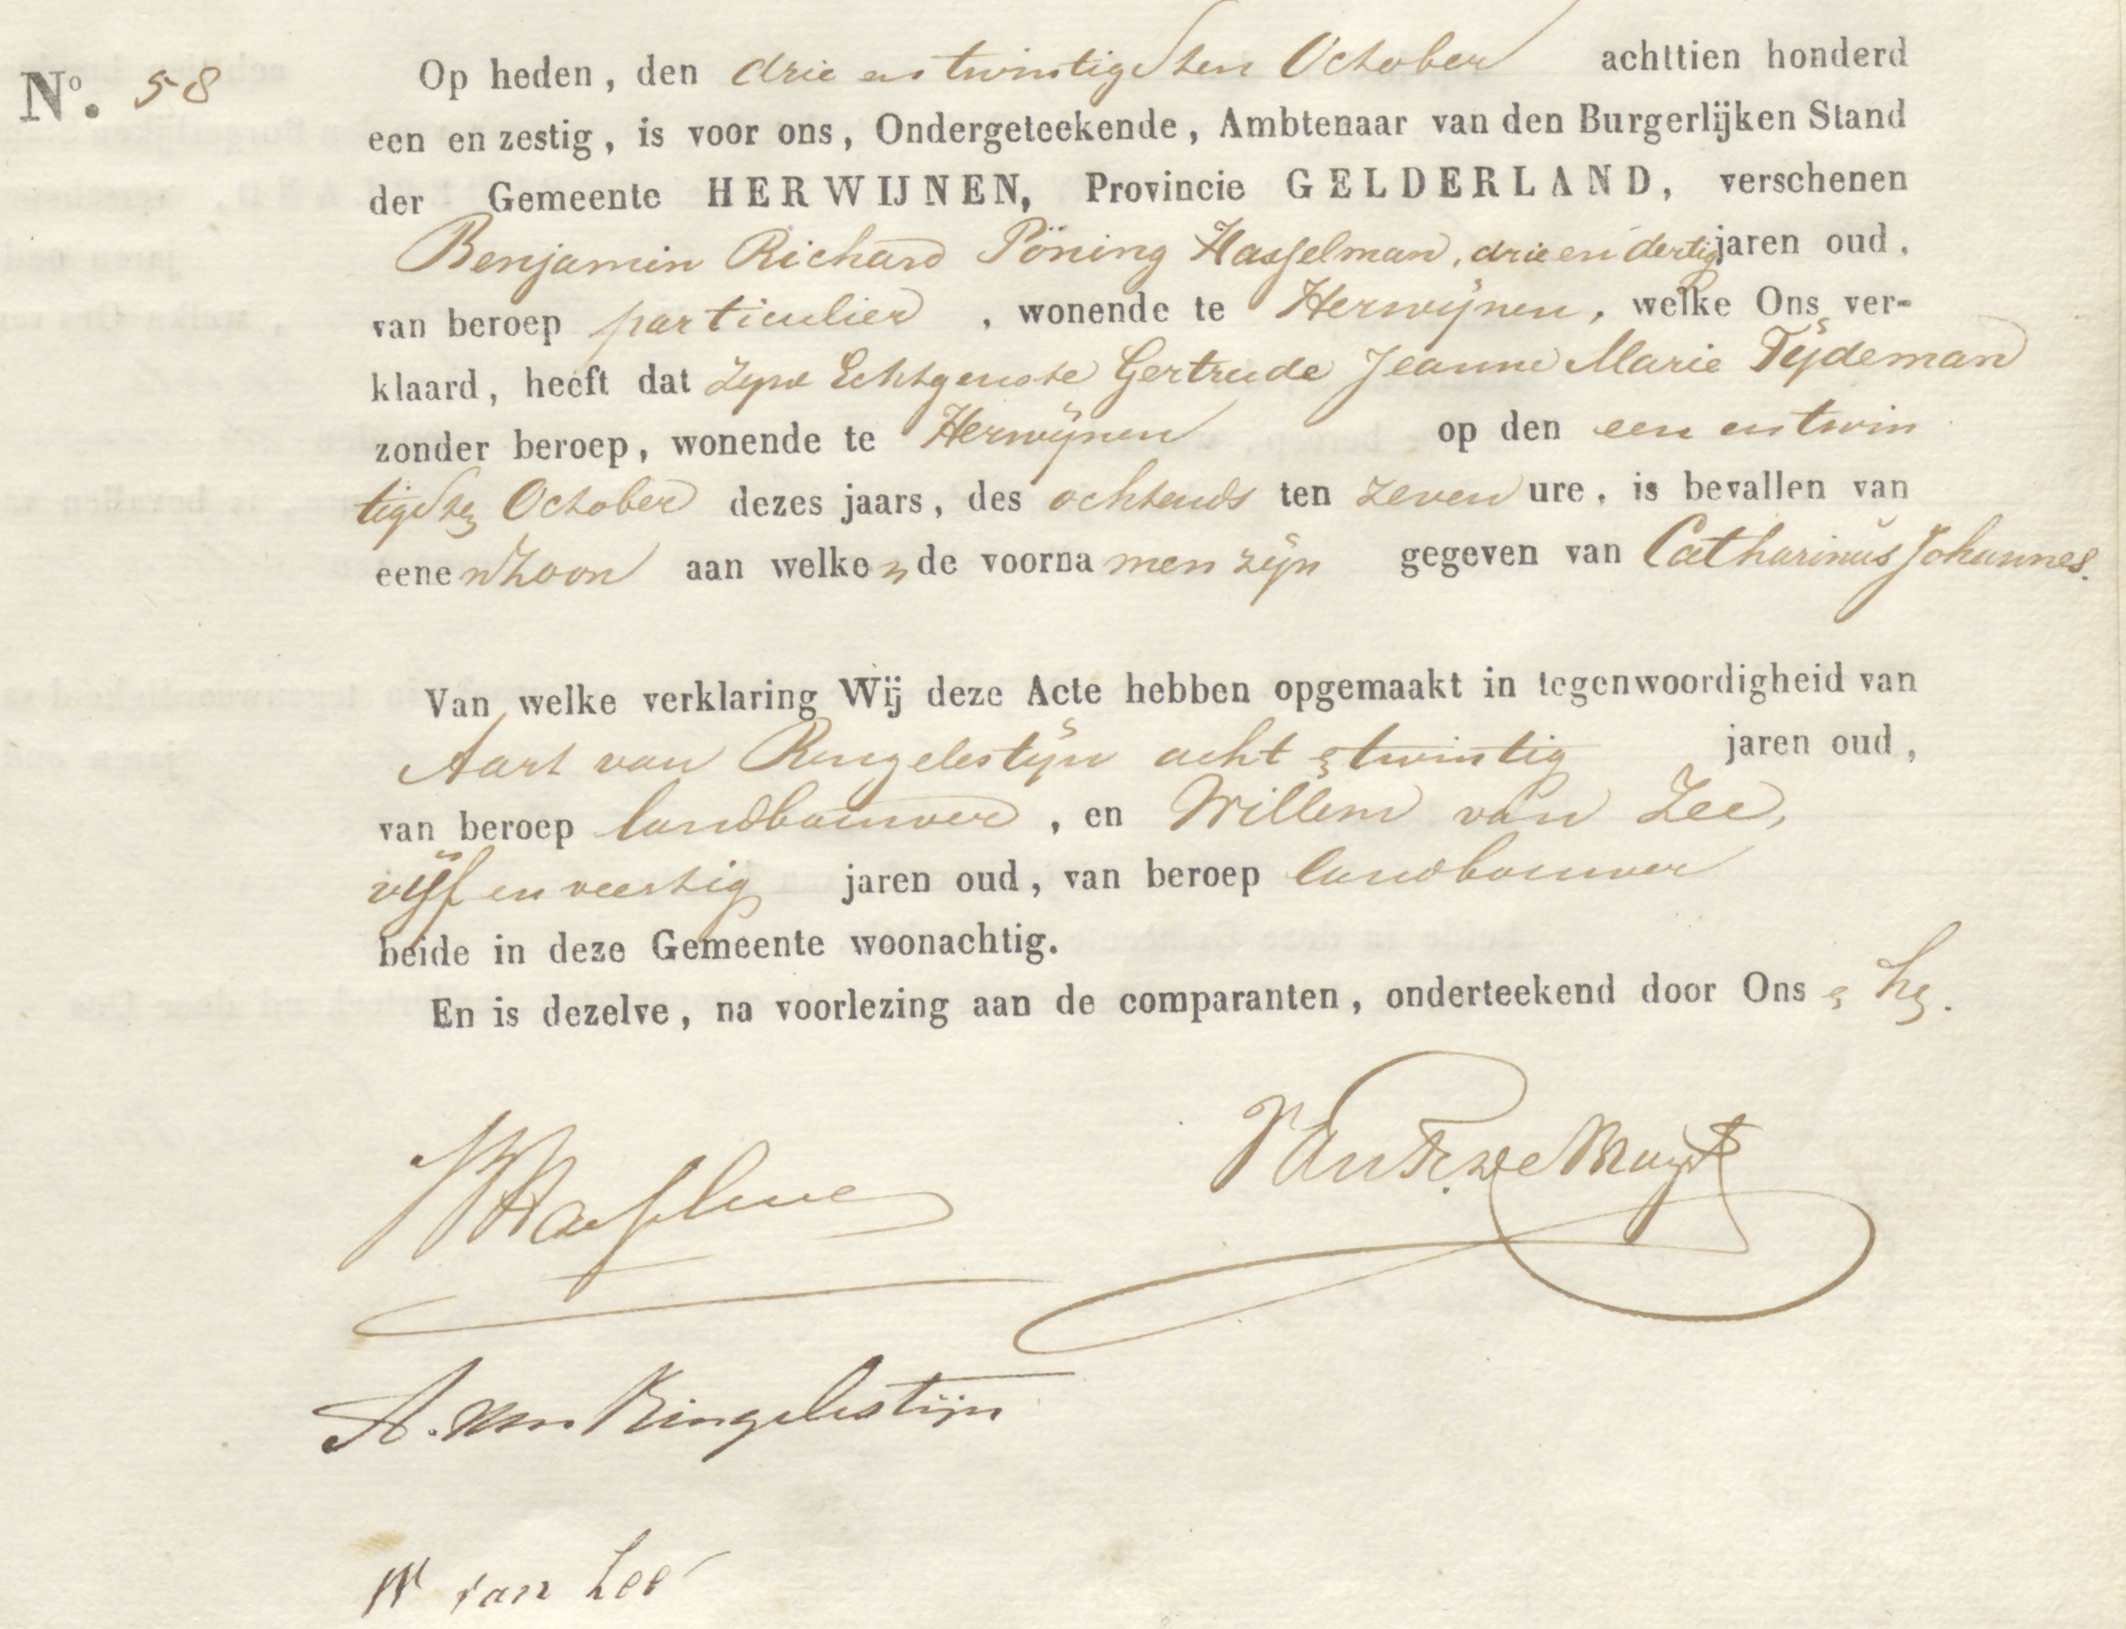 No. 58
Op heden, den drie en twintigsten October achttien honderd
een en zestig, is voor ons, Ondergeteekende, Ambtenaar van den Burgerlijken Stand
der Gemeente HERWIJNEN, Provincie GELDERLAND, verschenen
Benjamin Richard Pöning Hasselman, drie en dertig jaren oud,
van beroep particulier, wonende te Herwijnen, welke Ons ver-
klaard, heeft dat zyne Echtgenote Gertrude Jeanne Marie Tydeman
zonder beroep, wonende te Herwijnen op den een en twin
tigsten October dezes jaars, des ochtends ten zeven ure, is bevallen van
eenen zoon aan welken de voornamen zijn gegeven van Catharinus Johannes.
Van welke verklaring Wij deze Acte hebben opgemaakt in tegenwoordigheid van
Aart van Ringelestijn acht en twintig jaren oud,
van beroep landbouwer, en Willem van Zee,
vijf en veertig jaren oud, van beroep landbouwer
beide in deze Gemeente woonachtig.
En is dezelve, na voorlezing aan de comparanten, onderteekend door Ons en hen.
A. van Ringelestijn
W van Zee